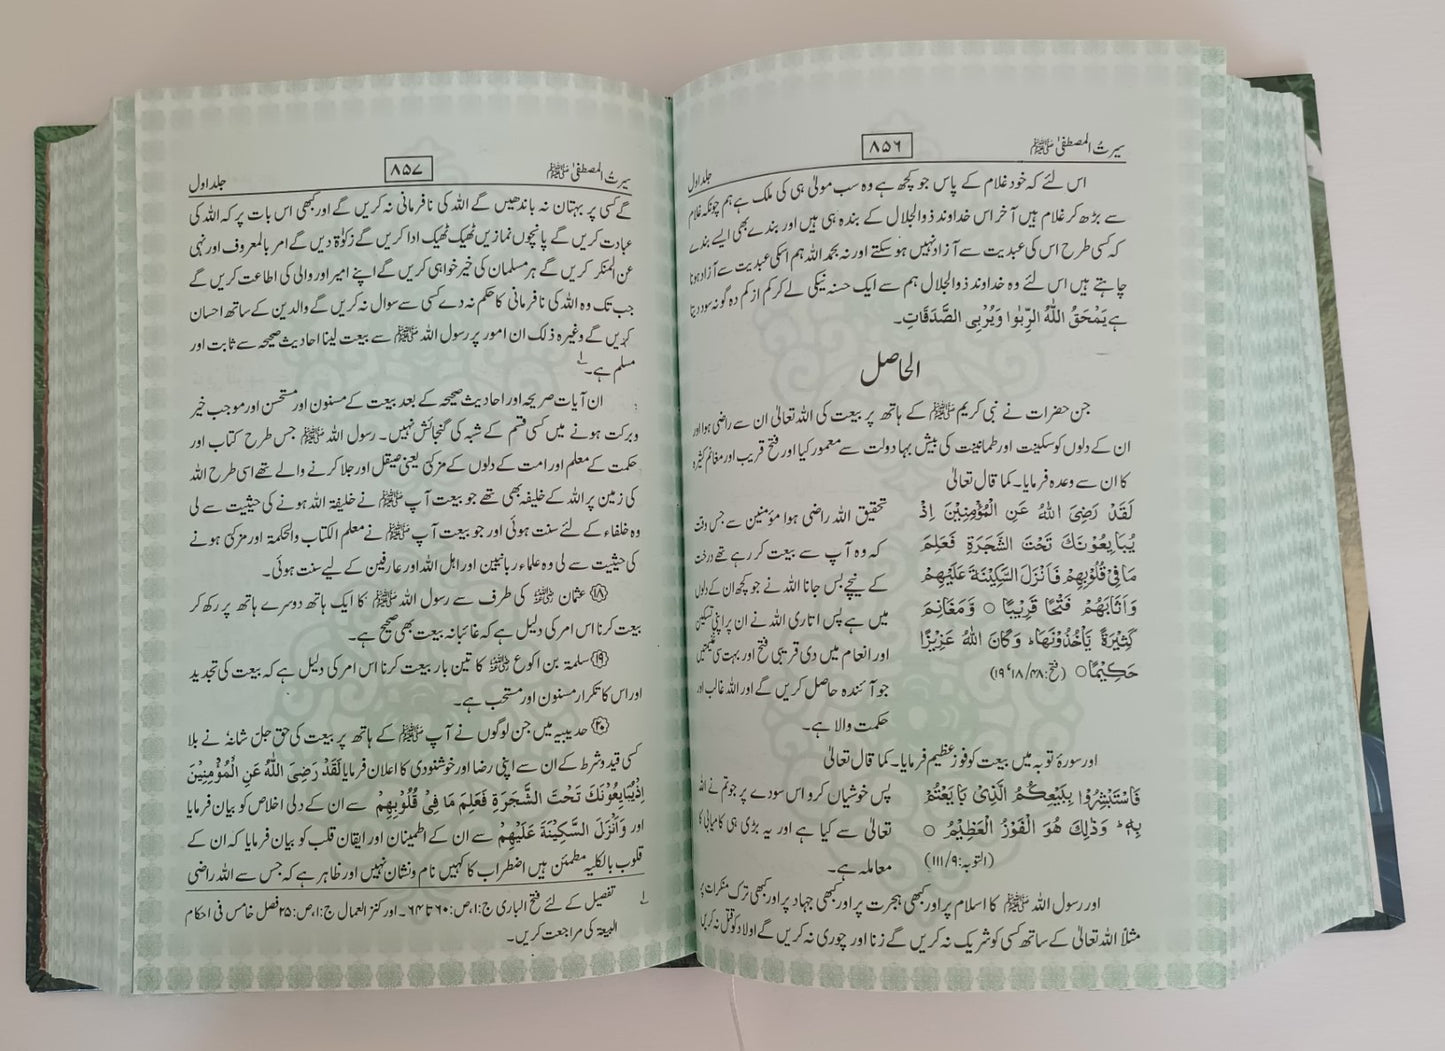 سیرتُ المصطفیٰ ﷺ
۸۵۶
جلد اول
اس لئے کہ خود غلام کے پاس جو کچھ ہے وہ سب مولیٰ ہی کی ملک ہے ہم چونکہ غلام
سے بڑھ کر غلام ہیں آخر اس خداوند ذوالجلال کے بندہ ہی ہیں اور بندے بھی ایسے بندے
کہ کسی طرح اس کی عبدیت سے آزاد نہیں ہو سکتے اور نہ بحمد اللہ ہم اسکی عبدیت سے آزاد ہونا
چاہتے ہیں اس لئے وہ خداوند ذوالجلال ہم سے ایک حسنہ نیکی لے کر کم از کم دہ گونہ سود دیتا
ہے یَمْحَقُ اللّٰہُ الرِّبٰوا وَیُرْبِی الصَّدَقَاتِ۔
الحاصل
جن حضرات نے نبی کریم ﷺ کے ہاتھ پر بیعت کی اللہ تعالیٰ ان سے راضی ہوا اور
ان کے دلوں کو سکینت اور طمانینت کی بیش بہا دولت سے معمور کیا اور فتح قریب اور مغانم کثیرہ
کا ان سے وعدہ فرمایا۔ کما قال تعالیٰ
لَقَدْ رَضِیَ اللّٰہُ عَنِ الْمُؤْمِنِیْنَ اِذْ
یُبَایِعُوْنَکَ تَحْتَ الشَّجَرَۃِ فَعَلِمَ
مَا فِیْ قُلُوْبِھِمْ فَاَنْزَلَ السَّکِیْنَۃَ عَلَیْھِمْ
وَاَثَابَھُمْ فَتْحًا قَرِیْبًا ○ وَّمَغَانِمَ
کَثِیْرَۃً یَّاْخُذُوْنَھَا ؕ وَکَانَ اللّٰہُ عَزِیْزًا
حَکِیْمًا ○ (فتح: ۴۸/۱۸، ۱۹)
تحقیق اللہ راضی ہوا مؤمنین سے جس وقت
کہ وہ آپ سے بیعت کر رہے تھے درخت
کے نیچے بس جانا اللہ نے جو کچھ ان کے دلوں
میں ہے پس اتاری اللہ نے ان پر اپنی تسکین
اور انعام میں دی قریبی فتح اور بہت سی غنیمتیں
جو آئندہ حاصل کریں گے اور اللہ غالب اور
حکمت والا ہے۔
اور سورۂ توبہ میں بیعت کو فوز عظیم فرمایا۔ کما قال تعالیٰ
فَاسْتَبْشِرُوْا بِبَیْعِکُمُ الَّذِیْ بَایَعْتُمْ
بِہٖ ؕ وَذٰلِکَ ھُوَ الْفَوْزُ الْعَظِیْمُ ○
(التوبہ: ۹/۱۱۱)
پس خوشیاں کرو اس سودے پر جو تم نے اللہ
تعالیٰ سے کیا ہے اور یہ بڑی ہی کامیابی کا
معاملہ ہے۔
اور رسول اللہ ﷺ کا اسلام پر اور کبھی ہجرت پر اور کبھی جہاد پر اور کبھی ترک منکرات پر
مثلاً اللہ تعالیٰ کے ساتھ کسی کو شریک نہ کریں گے زنا اور چوری نہ کریں گے اولاد کو قتل نہ کریں
سیرتُ المصطفیٰ ﷺ
۸۵۷
جلد اول
گے کسی پر بہتان نہ باندھیں گے اللہ کی نافرمانی نہ کریں گے اور کبھی اس بات پر کہ اللہ کی
عبادت کریں گے پانچوں نمازیں ٹھیک ٹھیک ادا کریں گے زکوٰۃ دیں گے امر بالمعروف اور نہی
عن المنکر کریں گے ہر مسلمان کی خیر خواہی کریں گے اپنے امیر اور والی کی اطاعت کریں گے
جب تک وہ اللہ کی نافرمانی کا حکم نہ دے کسی سے سوال نہ کریں گے والدین کے ساتھ احسان
کریں گے وغیرہ ذلک ان امور پر رسول اللہ ﷺ سے بیعت لینا احادیث صحیحہ سے ثابت اور
مسلم ہے۔ ۱
ان آیات صریحہ اور احادیث صحیحہ کے بعد بیعت کے مسنون اور مستحسن اور موجب خیر
و برکت ہونے میں کسی قسم کے شبہ کی گنجائش نہیں۔ رسول اللہ ﷺ جس طرح کتاب اور
حکمت کے معلم اور امت کے دلوں کے مزکی یعنی صیقل اور جلا کرنے والے تھے اسی طرح اللہ
کی زمین پر اللہ کے خلیفہ بھی تھے جو بیعت آپ ﷺ نے خلیفۃ اللہ ہونے کی حیثیت سے لی
وہ خلفاء کے لئے سنت ہوئی اور جو بیعت آپ ﷺ نے معلم الکتاب والحکمۃ اور مزکی ہونے
کی حیثیت سے لی وہ علماء ربانیین اور اہل اللہ اور عارفین کے لیے سنت ہوئی۔
﴿۱۸﴾ عثمان ؓ کی طرف سے رسول اللہ ﷺ کا ایک ہاتھ دوسرے ہاتھ پر رکھ کر
بیعت کرنا اس امر کی دلیل ہے کہ غائبانہ بیعت بھی صحیح ہے۔
﴿۱۹﴾ سلمۃ بن اکوع ؓ کا تین بار بیعت کرنا اس امر کی دلیل ہے کہ بیعت کی تجدید
اور اس کا تکرار مسنون اور مستحب ہے۔
﴿۲۰﴾ حدیبیہ میں جن لوگوں نے آپ ﷺ کے ہاتھ پر بیعت کی حق جل شانہٗ نے بلا
کسی قید و شرط کے ان سے اپنی رضا اور خوشنودی کا اعلان فرمایا لَقَدْ رَضِیَ اللّٰہُ عَنِ الْمُؤْمِنِیْنَ
اِذْ یُبَایِعُوْنَکَ تَحْتَ الشَّجَرَۃِ فَعَلِمَ مَا فِیْ قُلُوْبِھِمْ سے ان کے دلی اخلاص کو بیان فرمایا
اور وَاَنْزَلَ السَّکِیْنَۃَ عَلَیْھِمْ سے ان کے اطمینان اور ایقان قلب کو بیان فرمایا کہ ان کے
قلوب بالکلیہ مطمئن ہیں اضطراب کا کہیں نام و نشان نہیں اور ظاہر ہے کہ جس سے اللہ راضی
۱ تفصیل کے لئے فتح الباری ج:۱، ص: ۶۰ تا ۶۴۔ اور کنز العمال ج:۱، ص: ۲۵ فصل خامس فی احکام
البیعۃ کی مراجعت کریں۔